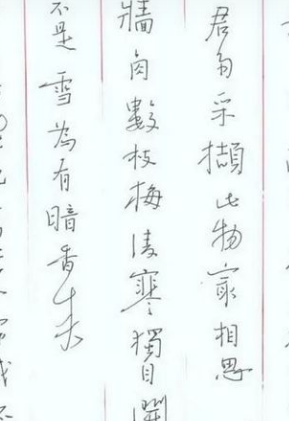 君多采擷此物最相思
牆角數枝梅凌寒獨自開
不是雪為有暗香來